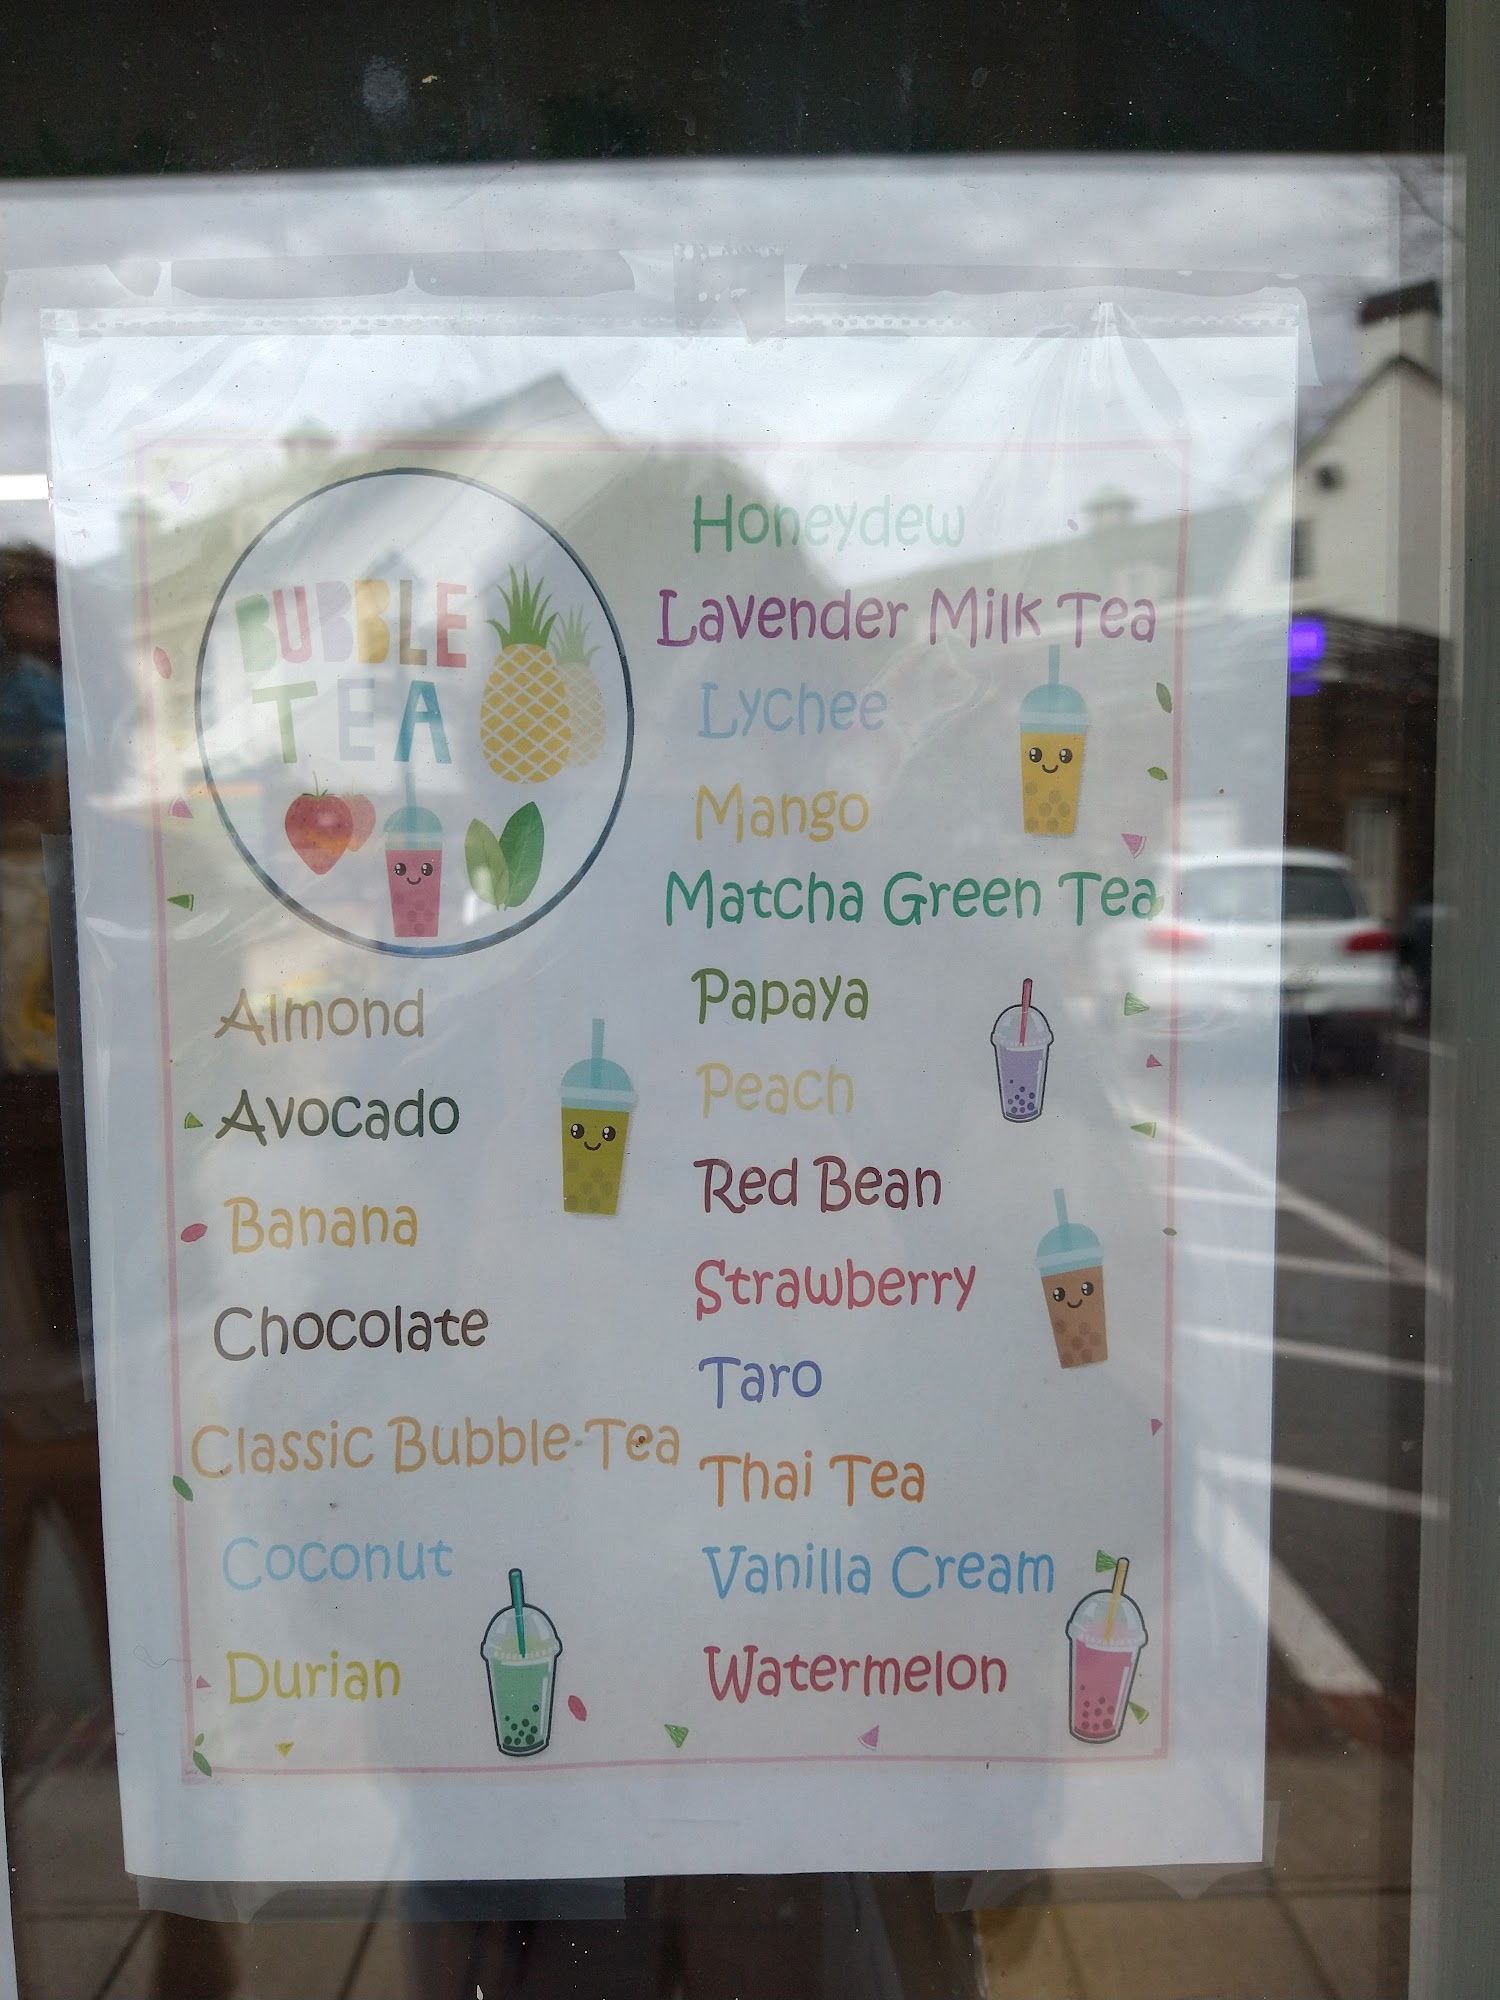 BUBBLE
TEA
Almond
Avocado
Banana
Chocolate
Classic Bubble Tea
Coconut
Durian
Honeydew
Lavender Milk Tea
Lychee
Mango
Matcha Green Tea
Papaya
Peach
Red Bean
Strawberry
Taro
Thai Tea
Vanilla Cream
Watermelon